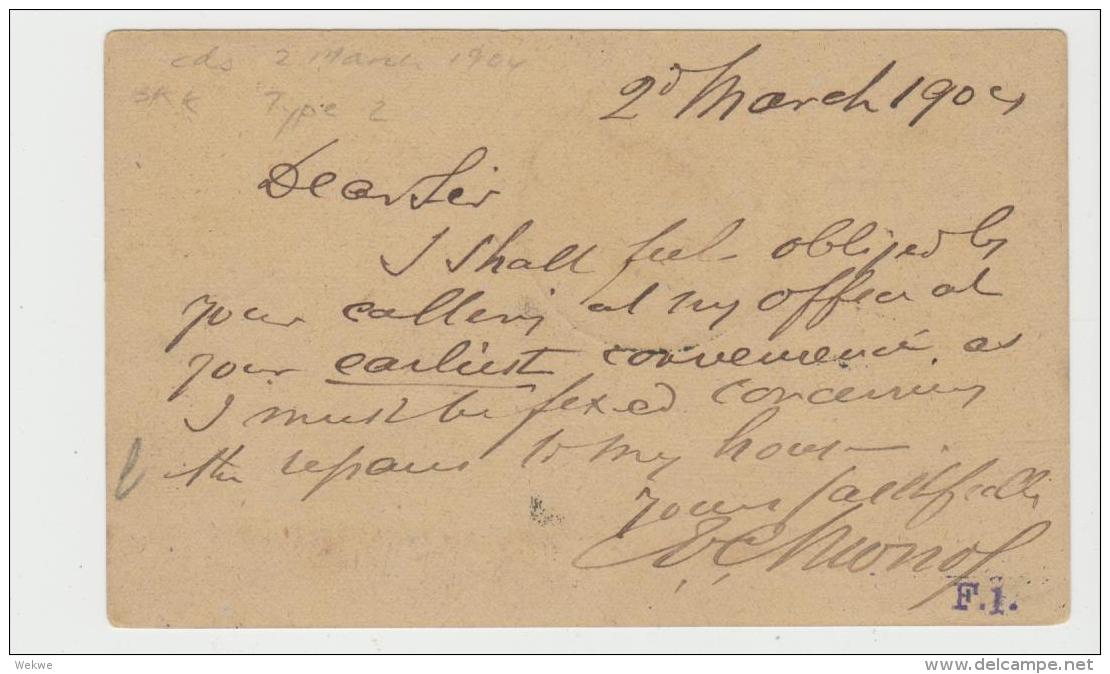 cds 2 March 1904
BKK Type 2
2d March 1904
Dear Sir
I shall feel obliged by
your calling at my office at
your earliest convenience, as
I must be fixed concerning
the repairs to my house
yours faithfully
F.1.
Wekwe
www.delcampe.net